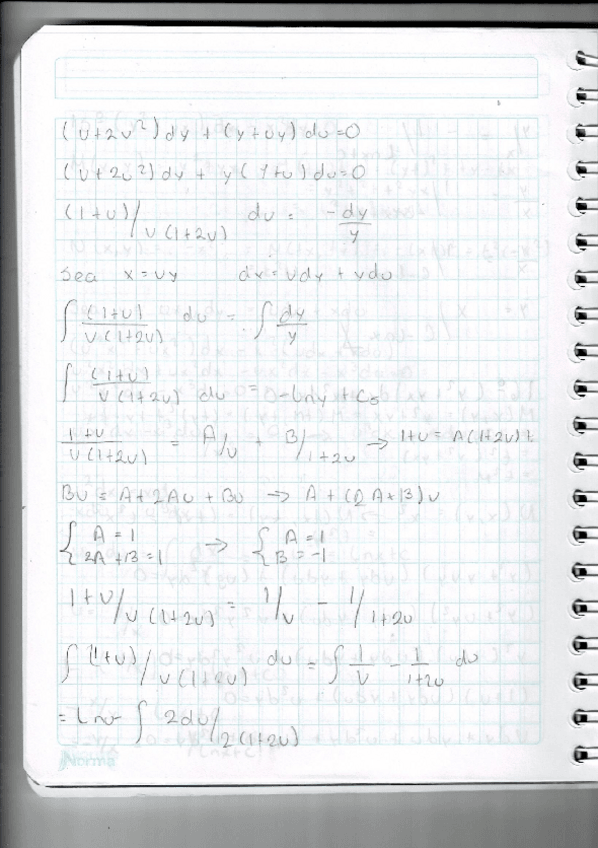 (v+2v²) dy + (y+vy) dv=0
(v+2v²) dy + y(1+v) dv=0
(1+v)/v(1+2v) dv = -dy/y
Sea x=vy dx=vdy + ydv
∫ (1+v)/v(1+2v) dv = ∫ dy/y
∫ (1+v)/v(1+2v) dv = -Lny + C
1+v/v(1+2v) = A/v + B/1+2v → 1+v = A(1+2v)+
Bv = A+2Av+Bv → A+(2A+B)v
{ A=1 → { A=1
2A+B=1 B=-1
1+v/v(1+2v) = 1/v - 1/1+2v
∫ (1+v)/v(1+2v) dv = ∫ 1/v - 1/1+2v dv
= Lnv - ∫ 2dv/2(1+2v)
Norma